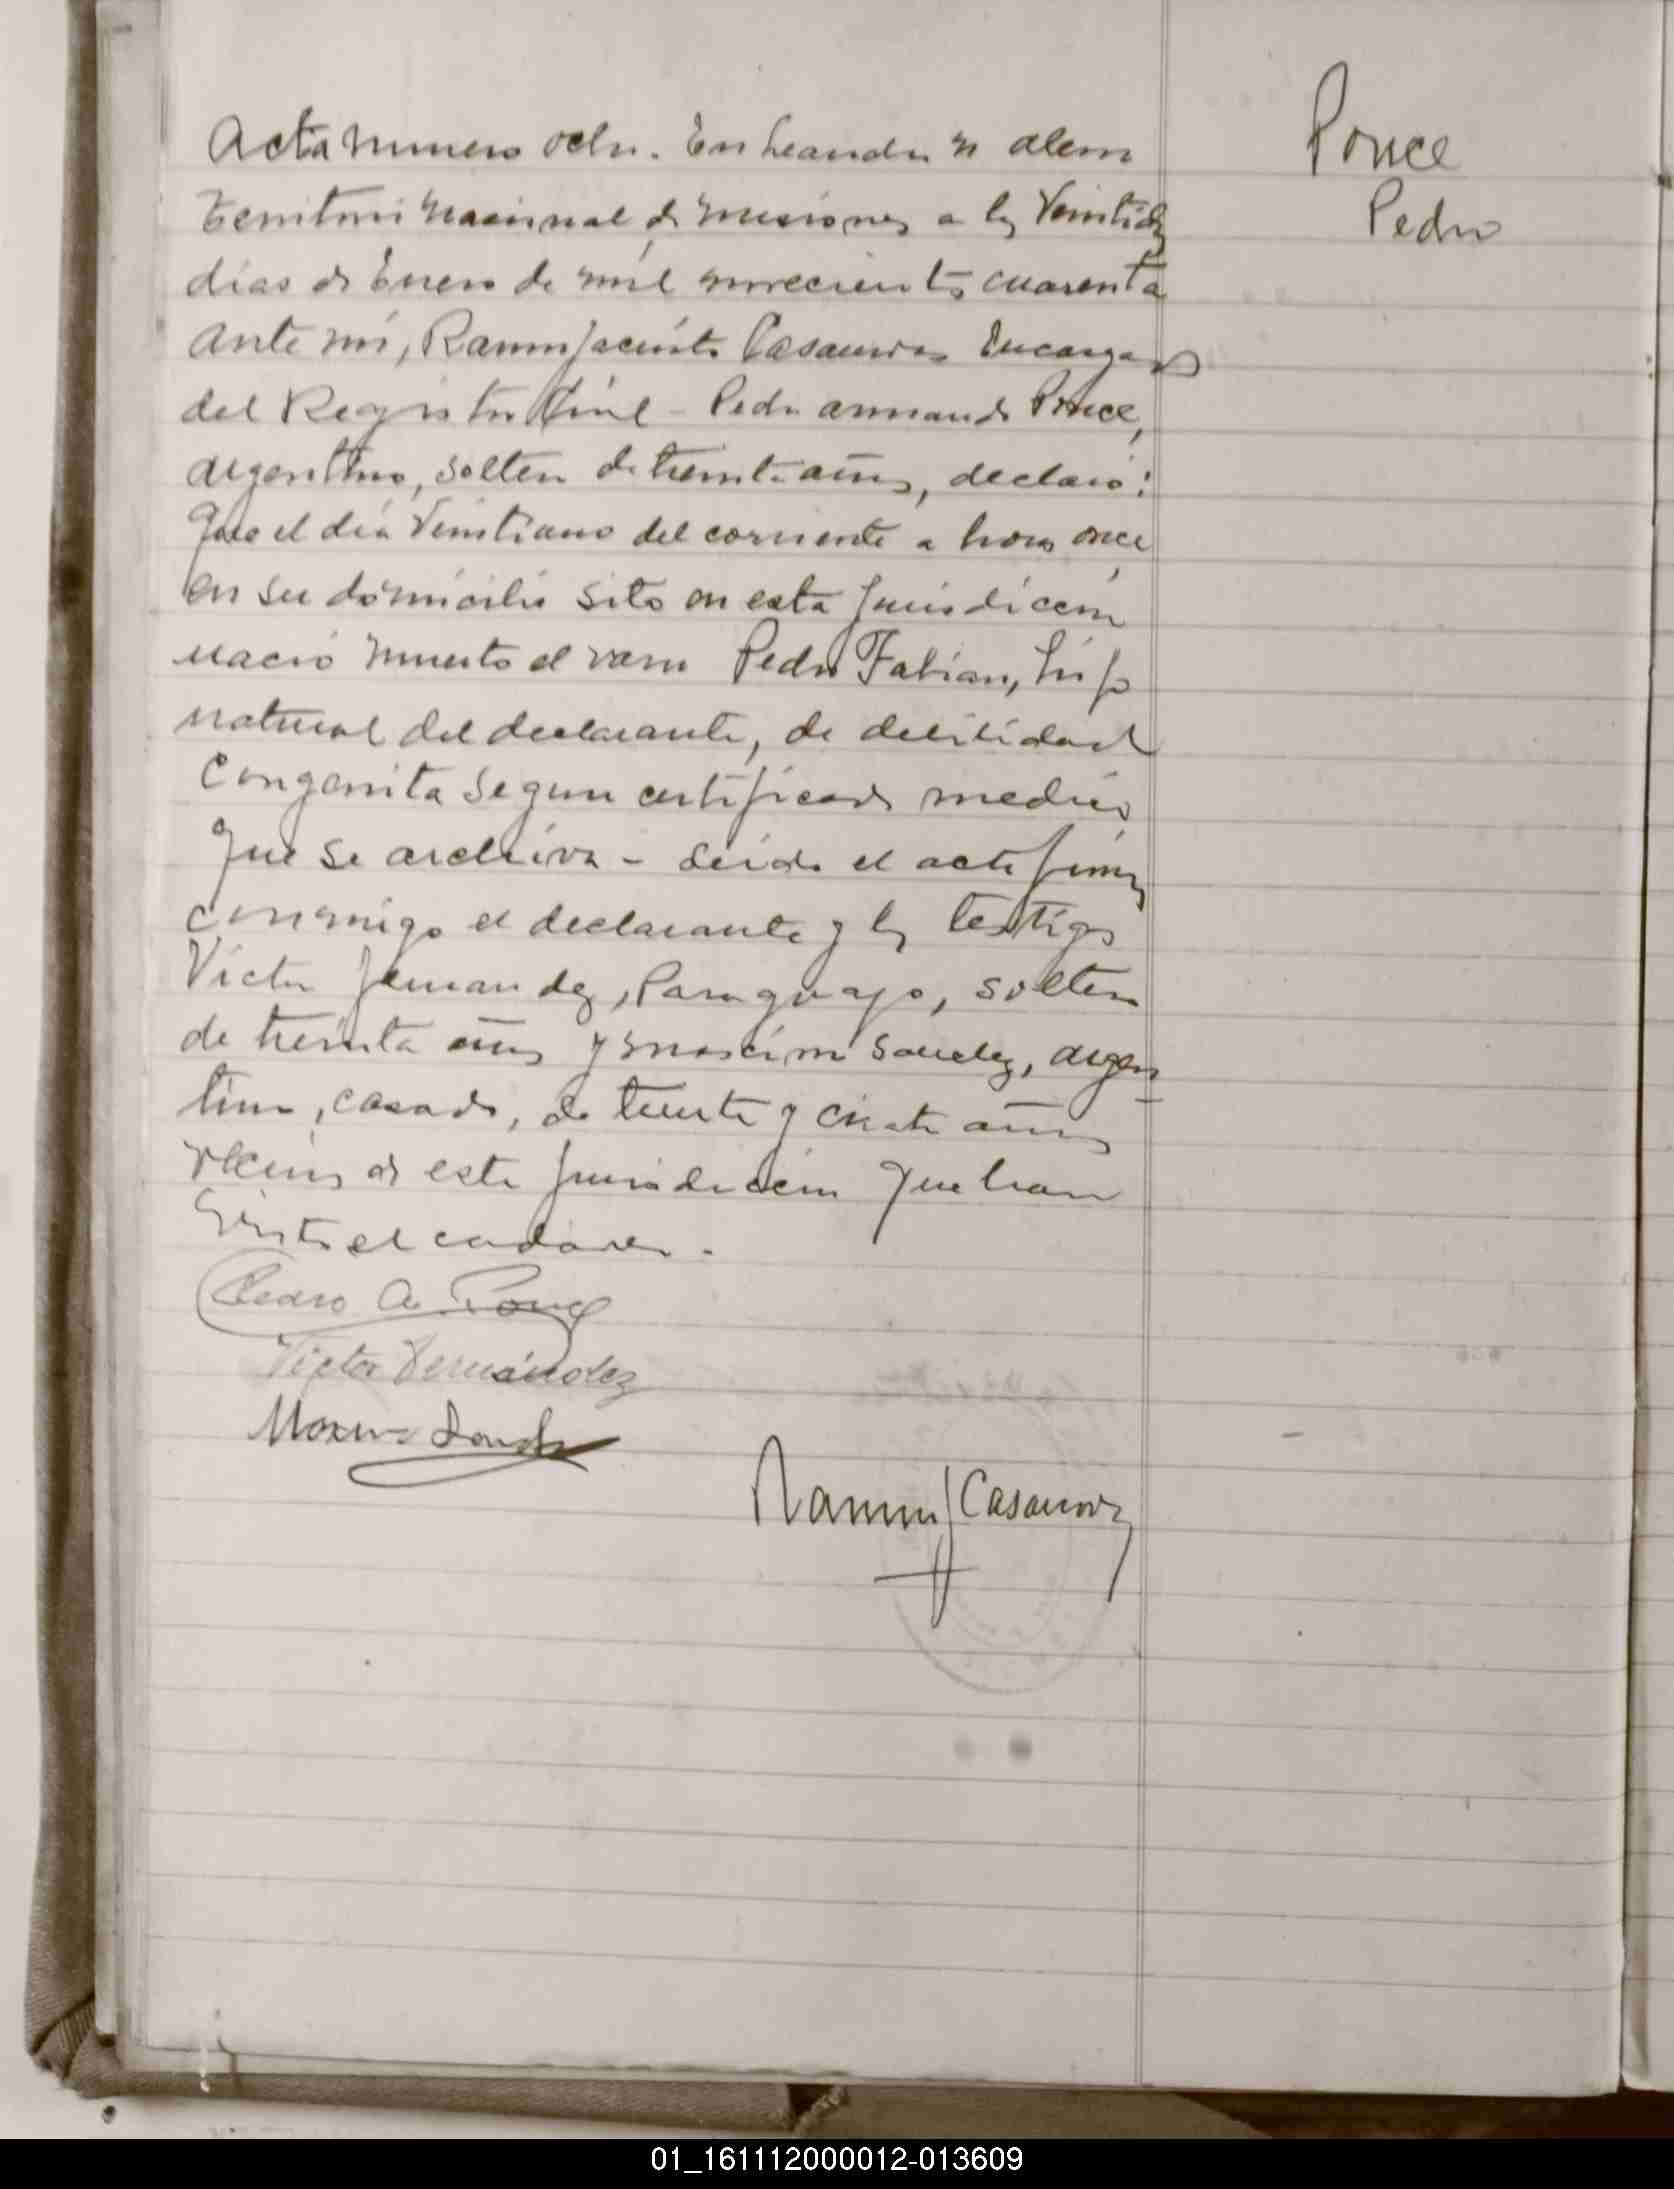 Ponce
Pedro
Acta numero ocho. En Leandro N Alem
Territorio Nacional de Misiones a los Veintidos
dias de Enero de mil novecientos cuarenta
ante mi, Ramon Jacinto Casanova Encargado
del Registro Civil - Pedro Armando Ponce,
argentino, soltero de treinta años, declaró:
Que el día Veintiuno del corriente a horas once
en su domicilio sito en esta Jurisdiccion
nació muerto el varon Pedro Fabian, hijo
natural del declarante, de debilidad
congenita segun certificado medico
que se archiva - Leida el acta firman
conmigo el declarante y los testigos
Victor Fernandez, Paraguayo, soltero
de treinta años y Maximo Sanchez, argen
tino, casado, de treinta y años
vecinos de esta jurisdiccion que han
visto el cadaver.
Pedro A. Ponce
Victor Fernández
Maximo
Ramon J Casanova
01_161112000012-013609